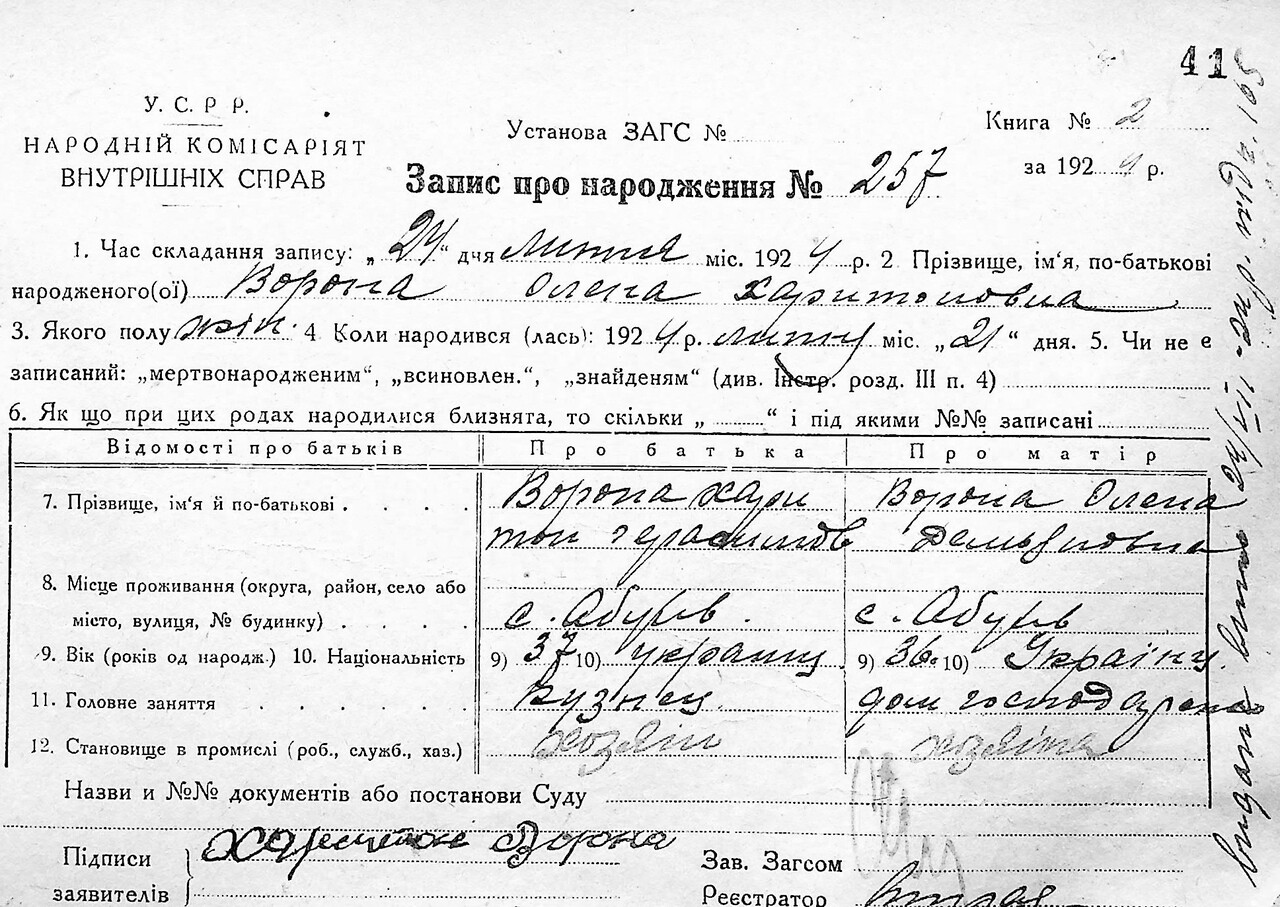 41
У. С. Р Р.
НАРОДНІЙ КОМІСАРІЯТ
ВНУТРІШНІХ СПРАВ
Установа ЗАГС №
Книга № 2
за 1924 р.
Запис про народження № 257
1. Час складання запису: „24“ дня лютня міс. 1924 р. 2 Прізвище, ім‘я, по-батькові
народженого(ої) Ворона Олена Харитоновна
3. Якого полу жін. 4 Коли народився (лась): 1924 р. люту міс. „21“ дня. 5. Чи не є
записаний: „мертвонародженим“, „всиновлен.“, „знайденям“ (див. Інстр. розд. III п. 4)
6. Як що при цих родах народилися близнята, то скільки „ “ і під якими №№ записані
Відомості про батьків Про батька Про матір
7. Прізвище, ім‘я й по-батькові . . . . Ворона Хари Ворона Олена
тон Герасимов Демьяновна
8. Місце проживання (округа, район, село або
місто, вулиця, № будинку) . . . . с. Абурь. с. Абурь
9. Вік (років од народж.) 10. Національність 9) 37 10) украинц. 9) 36. 10) Українц.
11. Головне заняття . . . . . . кузнец. дом господарка
12. Становище в промислі (роб., служб., хаз.) хозяін хозяіна
Назви и №№ документів або постанови Суду
Підписи
заявителів
Харитон Ворона
Зав. Загсом
Реєстратор